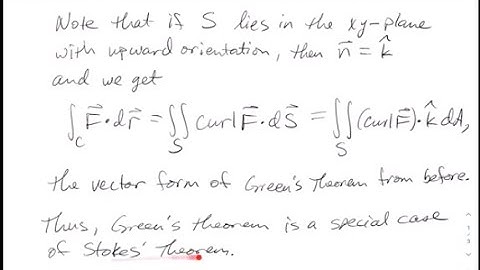 Note that if S lies in the xy-plane
with upward orientation, then n⃗ = k̂
and we get
∫_C F⃗·dr⃗ = ∬_S curl F⃗·dS⃗ = ∬_S (curl F⃗)·k̂ dA,
the vector form of Green's Theorem from before.
Thus, Green's theorem is a special case
of Stokes' Theorem.